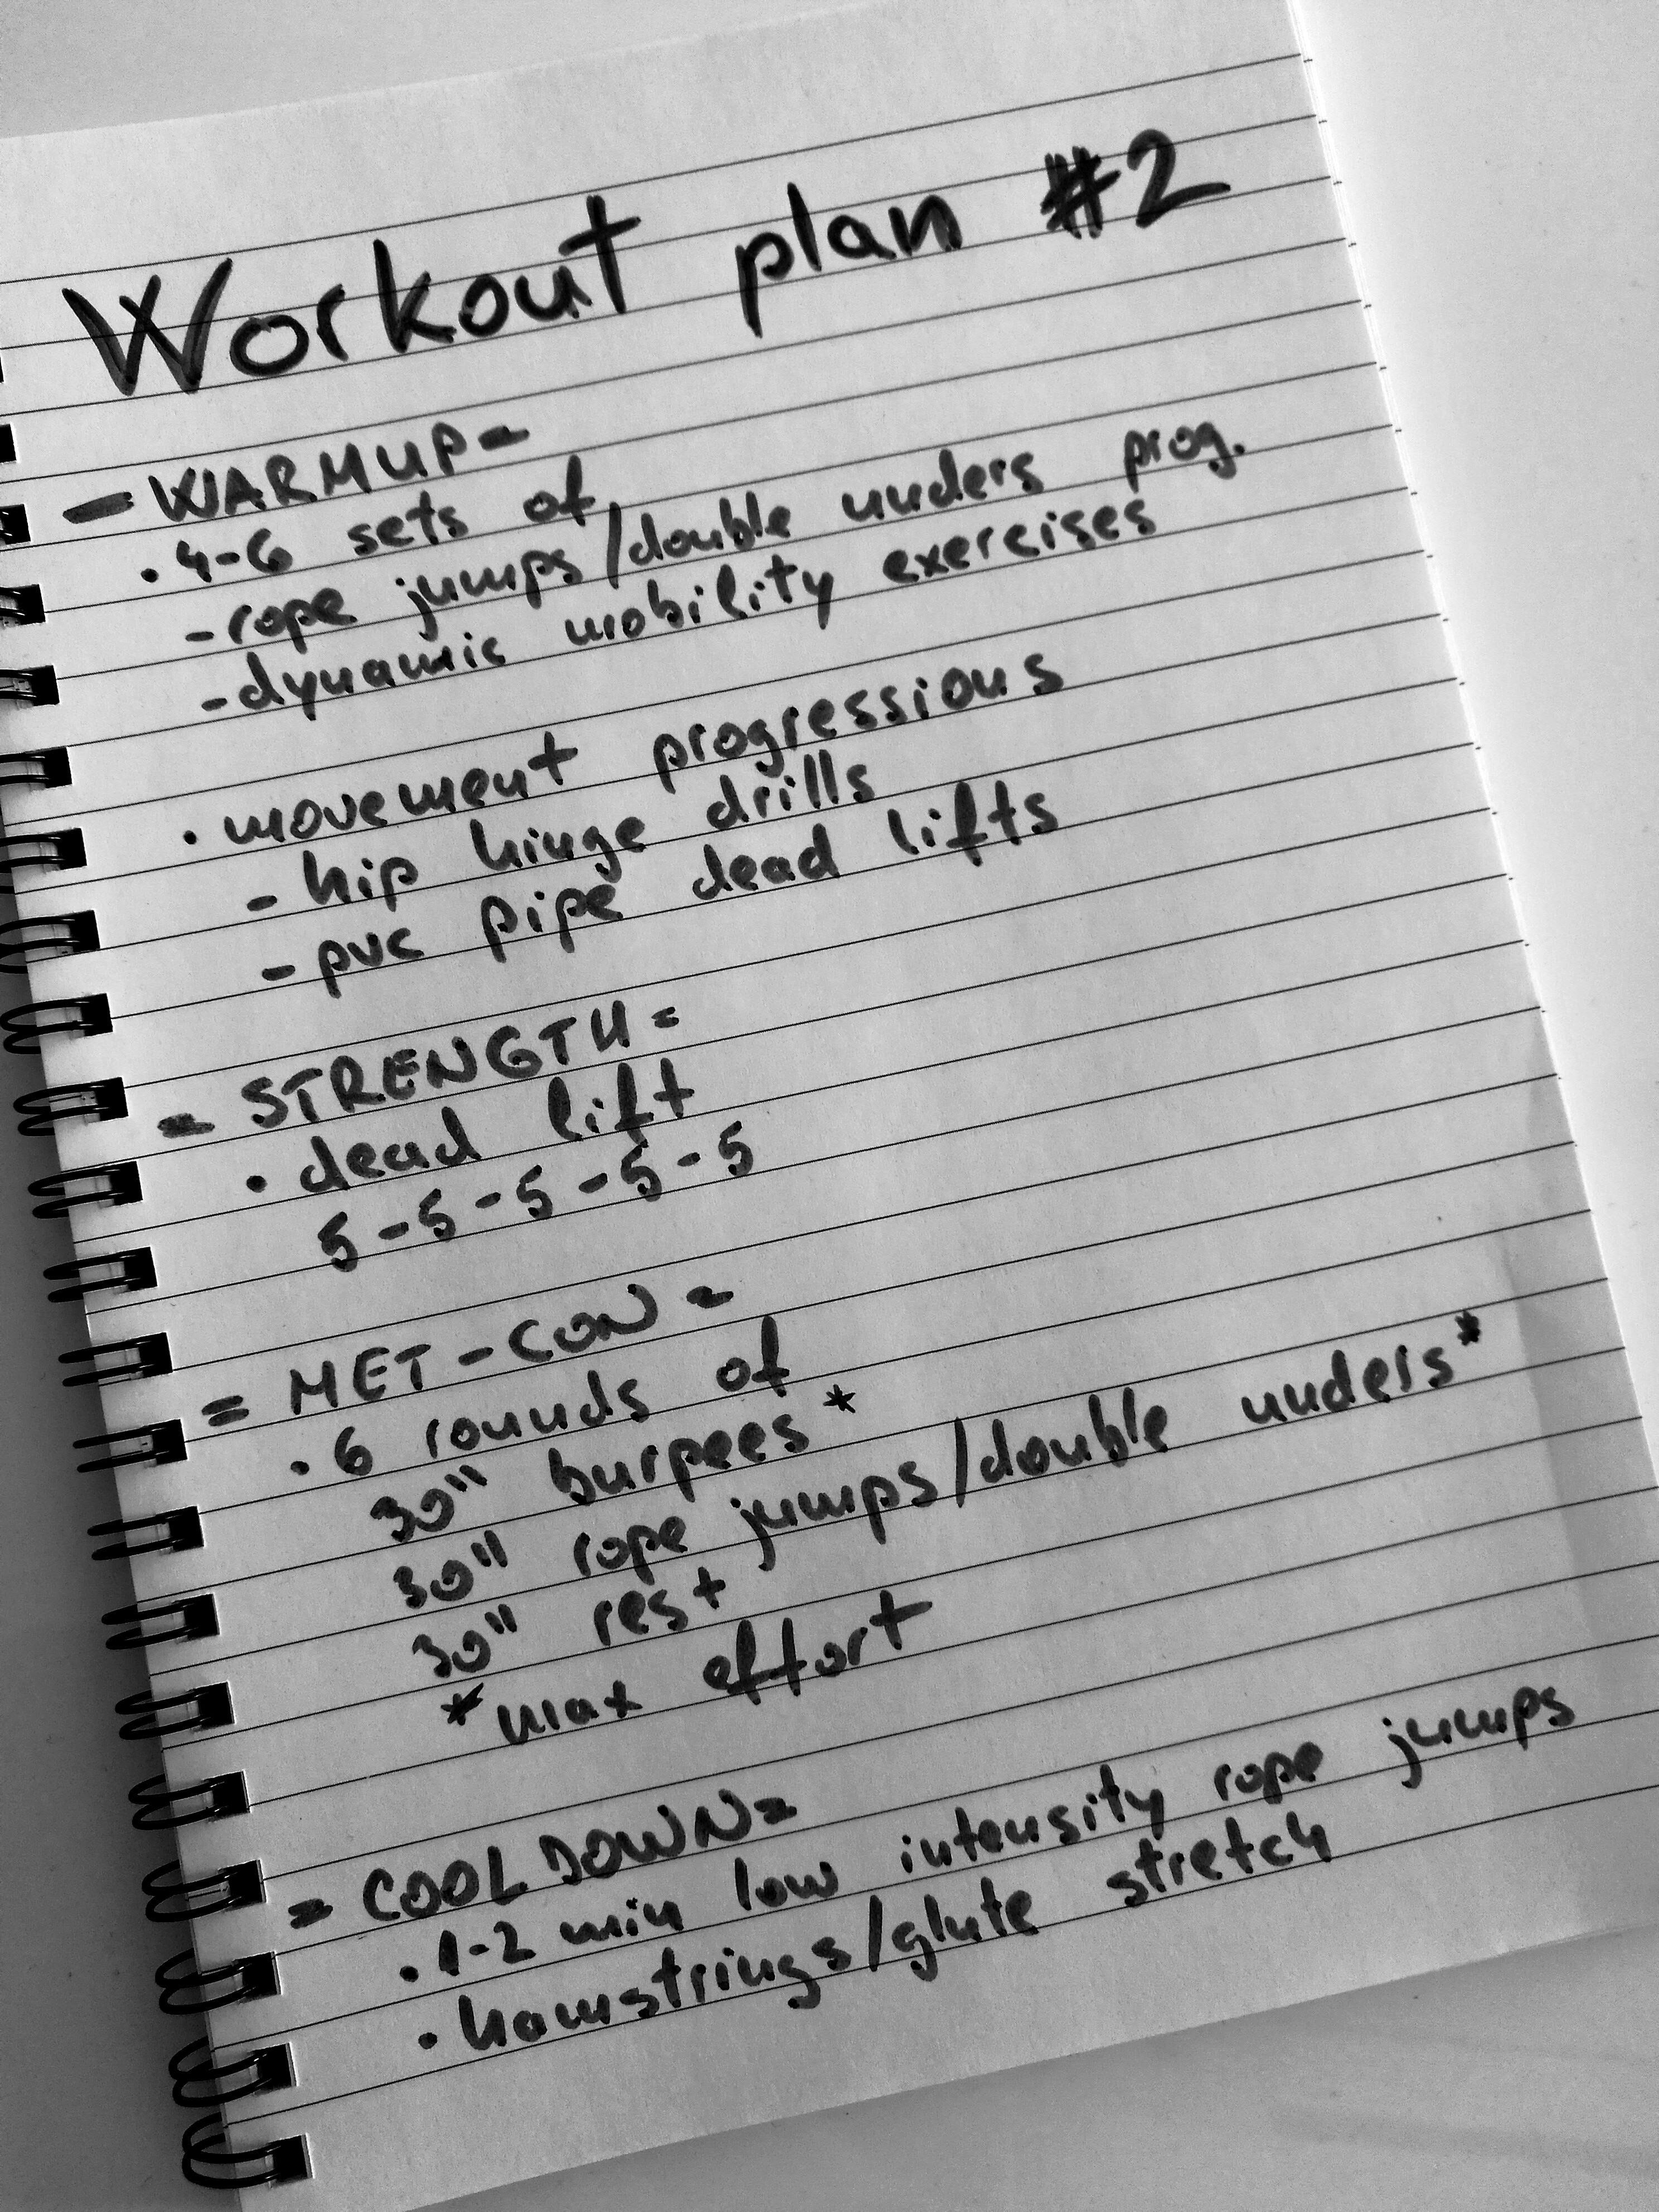 Workout plan #2
- WARMUP =
· 4-6 sets of
- rope jumps/double unders prog.
- dynamic mobility exercises
· movement progressions
- hip hinge drills
- pvc pipe dead lifts
= STRENGTH =
· dead lift
5 - 5 - 5 - 5 - 5
= MET-CON =
· 6 rounds of
30" burpees*
30" rope jumps/double unders*
30" rest
*max effort
= COOL DOWN =
· 1-2 min low intensity rope jumps
· hamstrings/glute stretch